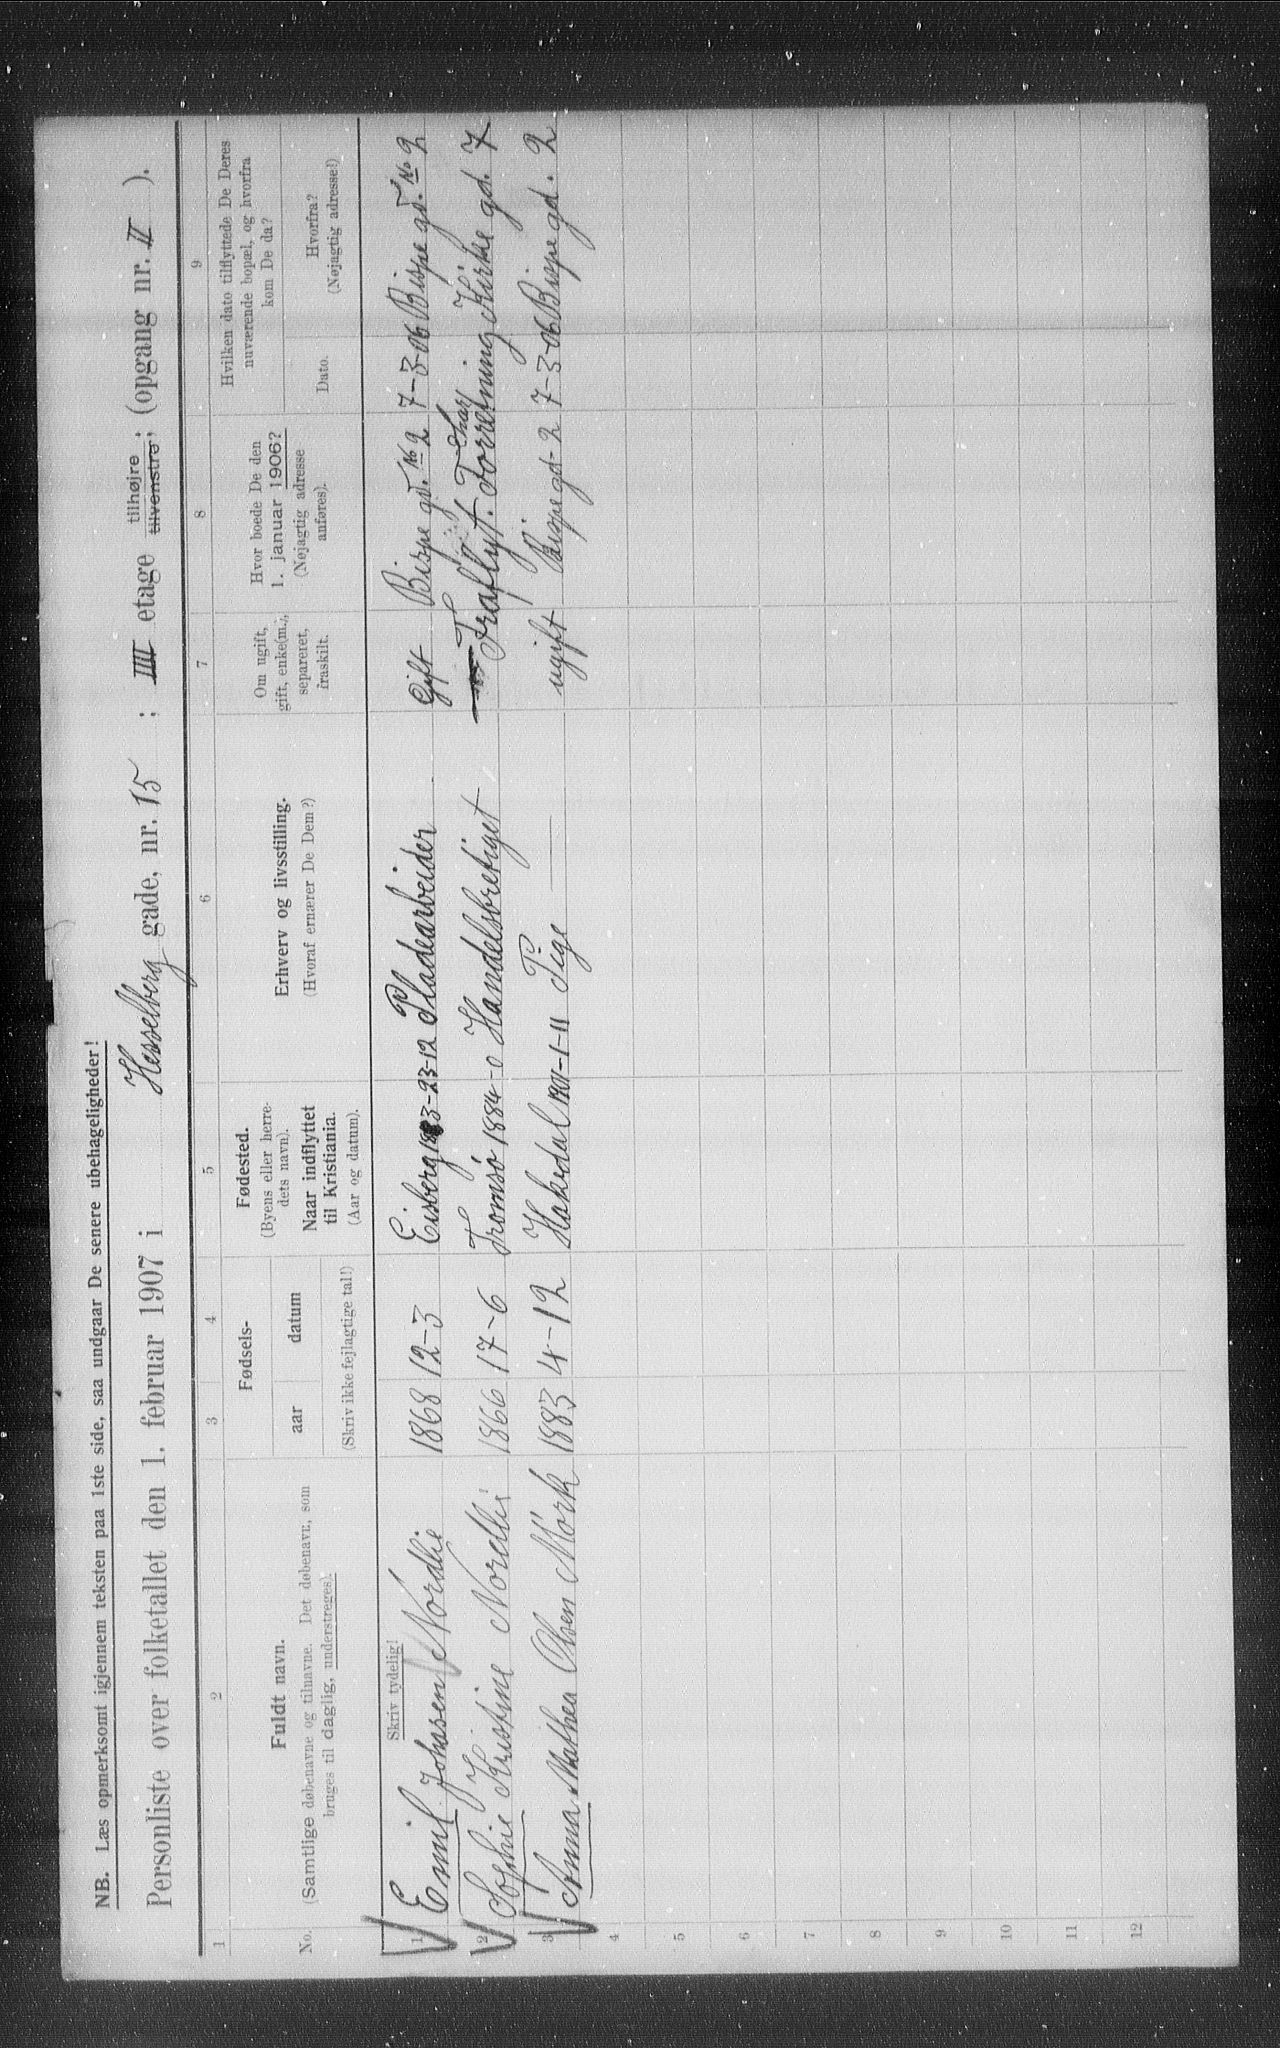 NB. Læs opmerksomt igjennem teksten paa 1ste side, saa undgaar De senere ubehageligheder!
Personliste over folketallet den 1. februar 1907 i Hesselberg gade, nr. 15 ; IIII etage tilhøjre ; tilvenstre; (opgang nr. II ).
1 2 3 4 5 6 7 8 9
No.
Fuldt navn.
(Samtlige døbenavne og tilnavne. Det døbenavn, som
bruges til daglig, understreges).
Fødsels-
aar
datum
(Skriv ikke fejlagtige tal!)
Fødested.
(Byens eller herre-
dets navn).
Naar indflyttet
til Kristiania.
(Aar og datum).
Erhverv og livsstilling.
(Hvoraf ernærer De Dem?)
Om ugift,
gift, enke(m.),
separeret,
fraskilt.
Hvor boede De den
1. januar 1906?
(Nøjagtig adresse
anføres).
Hvilken dato tilflyttede De Deres
nuværende bopæl, og hvorfra
kom De da?
Dato.
Hvorfra?
(Nøjagtig adresse!)
Skriv tydelig!
1 Emil Johnsen Nordlie 1868 12-3 Eisberg 1883-23-12 Pladearbeider Gift Bispegd. No 2 7-3-06 Bispegd. No 2
2 Sophie Kristine Nordlie 1866 17-6 Tromsø 1884-0 Handelsbretiget Fraflyt. har Forretning Kirkegd. 7
3 Anna Mathea Olsen Mörk 1883 4-12 Hakedal 1901-1-11 Pige ugift Bispegd-2 7-3-06 Bispegd. 2
4
5
6
7
8
9
10
11
12